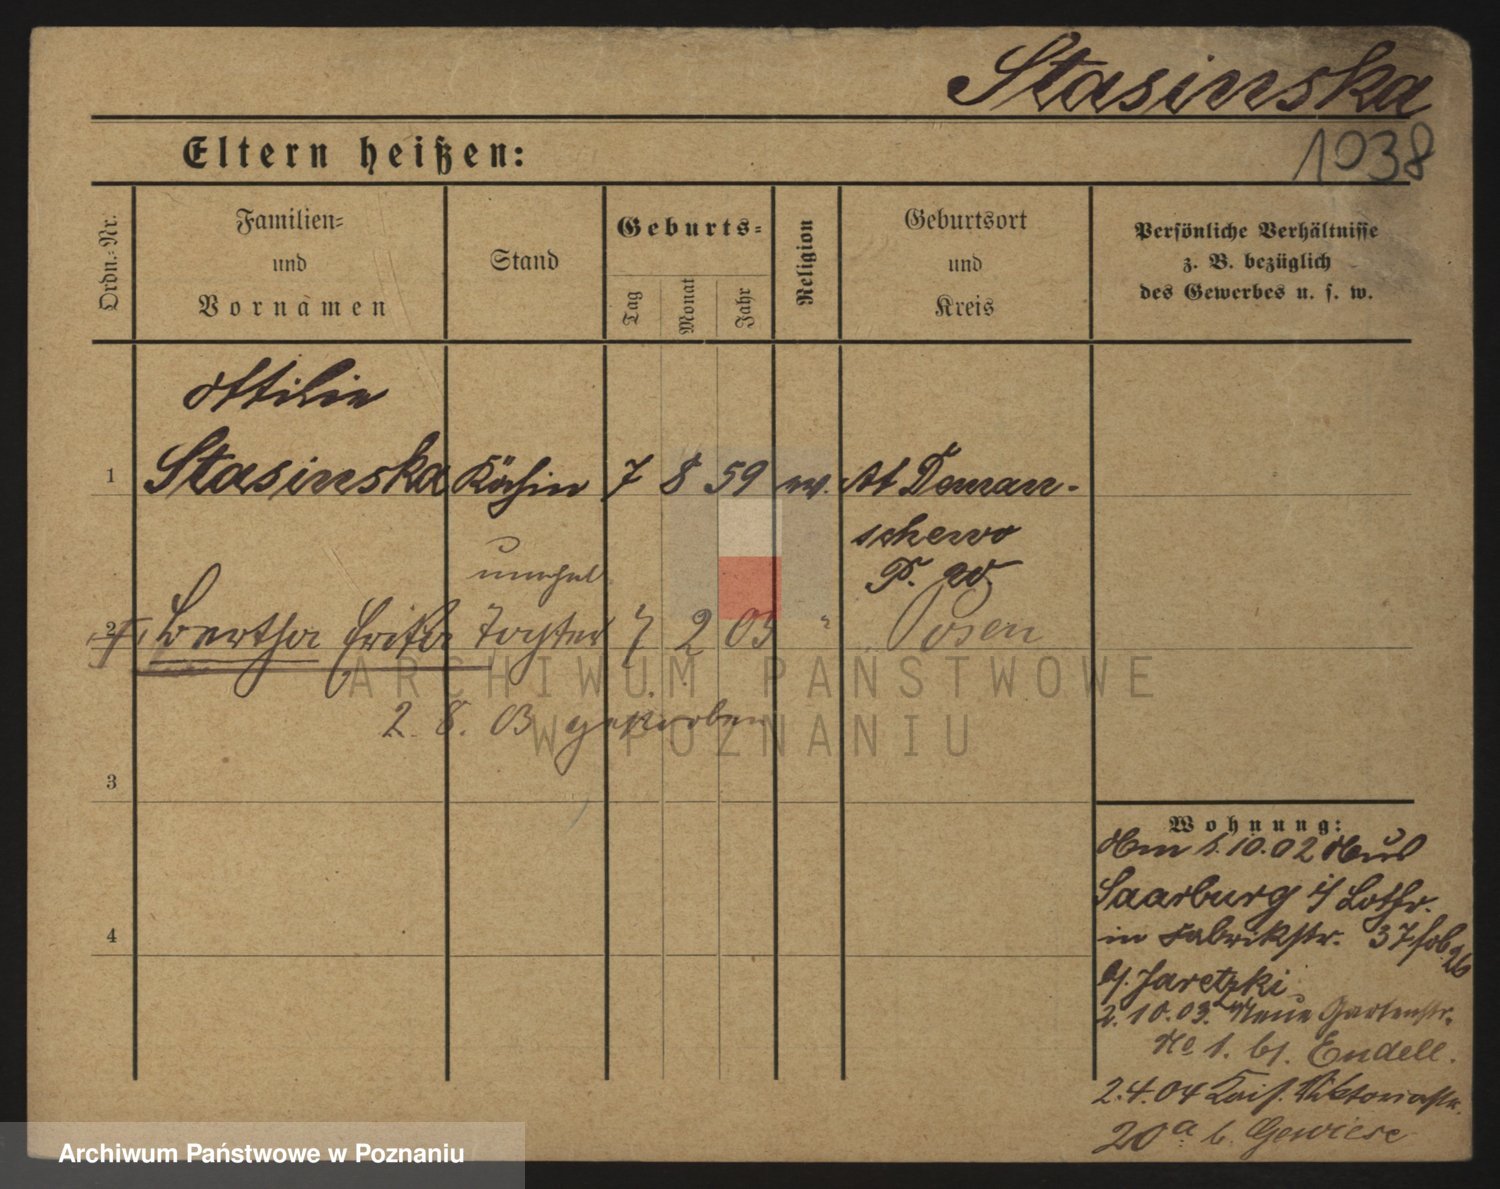 Stasinska
1038
Eltern heißen:
Ordn.-Nr.
Familien-
und
Vornamen
Stand
Geburts-
Tag
Monat
Jahr
Religion
Geburtsort
und
Kreis
Persönliche Verhältnisse
z. B. bezüglich
des Gewerbes u. s. w.
Ottilie
1 Stasinska Köchin 7 8 59 w. At Deman-
schewo
P. W.
unehel.
2 Bertha Erika Tochter 7 2 03 " Posen
2. 8. 03 gestorben
ARCHIWUM PAŃSTWOWE
W POZNANIU
3
4
Wohnung:
Am 1.10.02 Aus
Saarburg i/ Lothr.
in Fabrikstr. 37
b/. Jaretzki
2.10.03. Neue Gartenstr.
No 1. b/. Endell.
2.4.04 Kais. Viktoriastr.
20a b. Gewiese
Archiwum Państwowe w Poznaniu